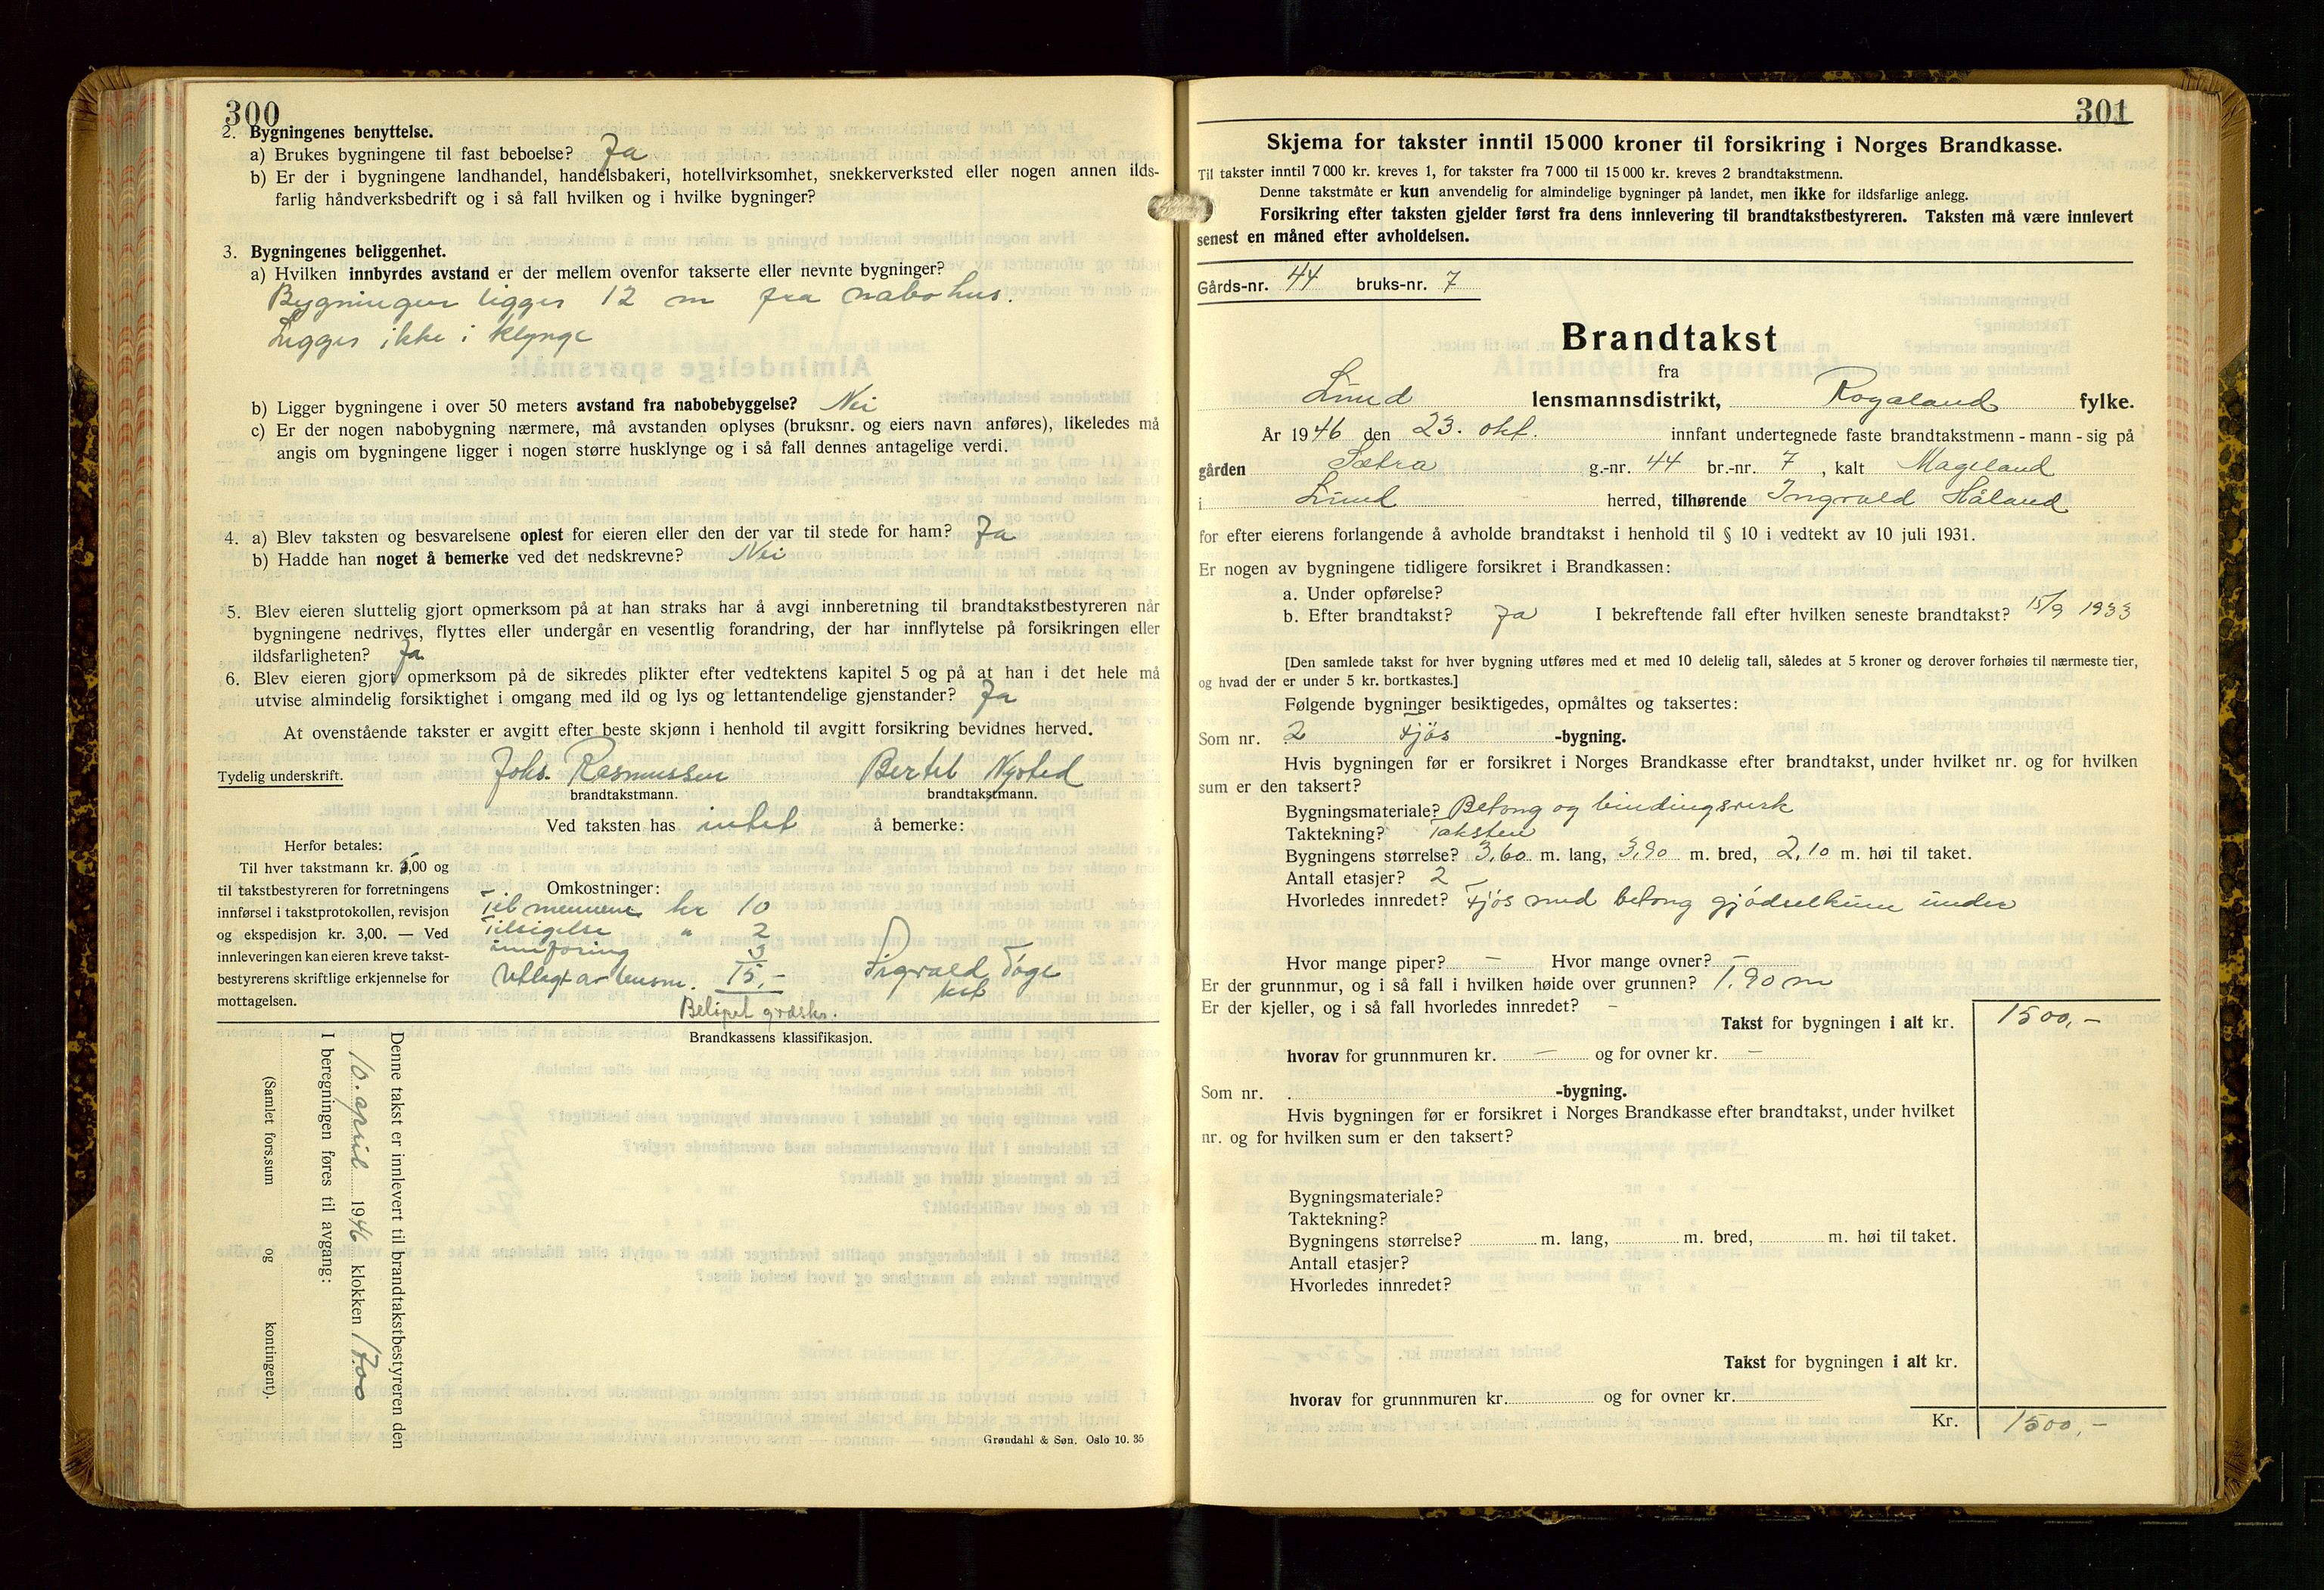 300
2. Bygningenes benyttelse.
a) Brukes bygningene til fast beboelse? Ja
b) Er der i bygningene landhandel, handelsbakeri, hotellvirksomhet, snekkerverksted eller nogen annen ilds-
farlig håndverksbedrift og i så fall hvilken og i hvilke bygninger?
3. Bygningenes beliggenhet.
a) Hvilken innbyrdes avstand er der mellem ovenfor takserte eller nevnte bygninger?
Bygningen ligger 12 m fra nabohus.
Ligger ikke i klynge
b) Ligger bygningene i over 50 meters avstand fra nabobebyggelse? Nei
c) Er der nogen nabobygning nærmere, må avstanden oplyses (bruksnr. og eiers navn anføres), likeledes må
angis om bygningene ligger i nogen større husklynge og i så fall dennes antagelige verdi.
4. a) Blev taksten og besvarelsene oplest for eieren eller den der var til stede for ham? Ja
b) Hadde han noget å bemerke ved det nedskrevne? Nei
5. Blev eieren sluttelig gjort opmerksom på at han straks har å avgi innberetning til brandtakstbestyreren når
bygningene nedrives, flyttes eller undergår en vesentlig forandring, der har innflytelse på forsikringen eller
ildsfarligheten? Ja
6. Blev eieren gjort opmerksom på de sikredes plikter efter vedtektens kapitel 5 og på at han i det hele må
utvise almindelig forsiktighet i omgang med ild og lys og lettantendelige gjenstander? Ja
At ovenstående takster er avgitt efter beste skjønn i henhold til avgitt forsikring bevidnes herved.
Tydelig underskrift. Johs. Rasmussen Bertel Nysted
brandtakstmann. brandtakstmann.
Ved taksten has intet å bemerke:
Herfor betales:
Til hver takstmann kr. 5,00 og
til takstbestyreren for forretningens
innførsel i takstprotokollen, revisjon
og ekspedisjon kr. 3,00. — Ved
innleveringen kan eieren kreve takst-
bestyrerens skriftlige erkjennelse for
mottagelsen.
Omkostninger:
Til mennene kr 10
Tilsigelse " 2
innføring 3
Utlagt av lensm. 15,-
Sigvald Tøge
Beløpet
Brandkassens klassifikasjon.
Denne takst er innlevert til brandtakstbestyreren den
10. april 1946 klokken 1700
I beregningen føres til avgang:
(Samlet fors.sum og kontingent).
Grøndahl & Søn. Oslo 10. 35
301
Skjema for takster inntil 15 000 kroner til forsikring i Norges Brandkasse.
Til takster inntil 7 000 kr. kreves 1, for takster fra 7 000 til 15 000 kr. kreves 2 brandtakstmenn.
Denne takstmåte er kun anvendelig for almindelige bygninger på landet, men ikke for ildsfarlige anlegg.
Forsikring efter taksten gjelder først fra dens innlevering til brandtakstbestyreren. Taksten må være innlevert
senest en måned efter avholdelsen.
Gårds-nr. 44 bruks-nr. 7
Brandtakst
fra
Lund lensmannsdistrikt, Rogaland fylke.
År 1946 den 23. okt. innfant undertegnede faste brandtakstmenn - mann - sig på
gården Sætra g.-nr. 44 br.-nr. 7, kalt Mageland
i Lund herred, tilhørende Ingvald Håland
for efter eierens forlangende å avholde brandtakst i henhold til § 10 i vedtekt av 10 juli 1931.
Er nogen av bygningene tidligere forsikret i Brandkassen:
a. Under opførelse?
b. Efter brandtakst? Ja I bekreftende fall efter hvilken seneste brandtakst? 15/9 1933
[Den samlede takst for hver bygning utføres med et med 10 delelig tall, således at 5 kroner og derover forhøies til nærmeste tier,
og hvad der er under 5 kr. bortkastes.]
Følgende bygninger besiktigedes, opmåltes og taksertes:
Som nr. 2 Fjøs -bygning.
Hvis bygningen før er forsikret i Norges Brandkasse efter brandtakst, under hvilket nr. og for hvilken
sum er den taksert?
Bygningsmateriale? Betong og bindingsverk
Taktekning? Taksten
Bygningens størrelse? 3,60 m. lang, 3,90 m. bred, 2,10 m. høi til taket.
Antall etasjer? 2
Hvorledes innredet? Fjøs med betong gjødselkum under
Hvor mange piper? — Hvor mange ovner? —
Er der grunnmur, og i så fall i hvilken høide over grunnen? 1,90 m
Er der kjeller, og i så fall hvorledes innredet?
Takst for bygningen i alt kr. 1500,-
hvorav for grunnmuren kr. — og for ovner kr. —
Som nr. -bygning.
Hvis bygningen før er forsikret i Norges Brandkasse efter brandtakst, under hvilket
nr. og for hvilken sum er den taksert?
Bygningsmateriale?
Taktekning?
Bygningens størrelse? m. lang, m. bred, m. høi til taket.
Antall etasjer?
Hvorledes innredet?
Takst for bygningen i alt kr.
hvorav for grunnmuren kr. og for ovner kr.
Kr. 1500,-